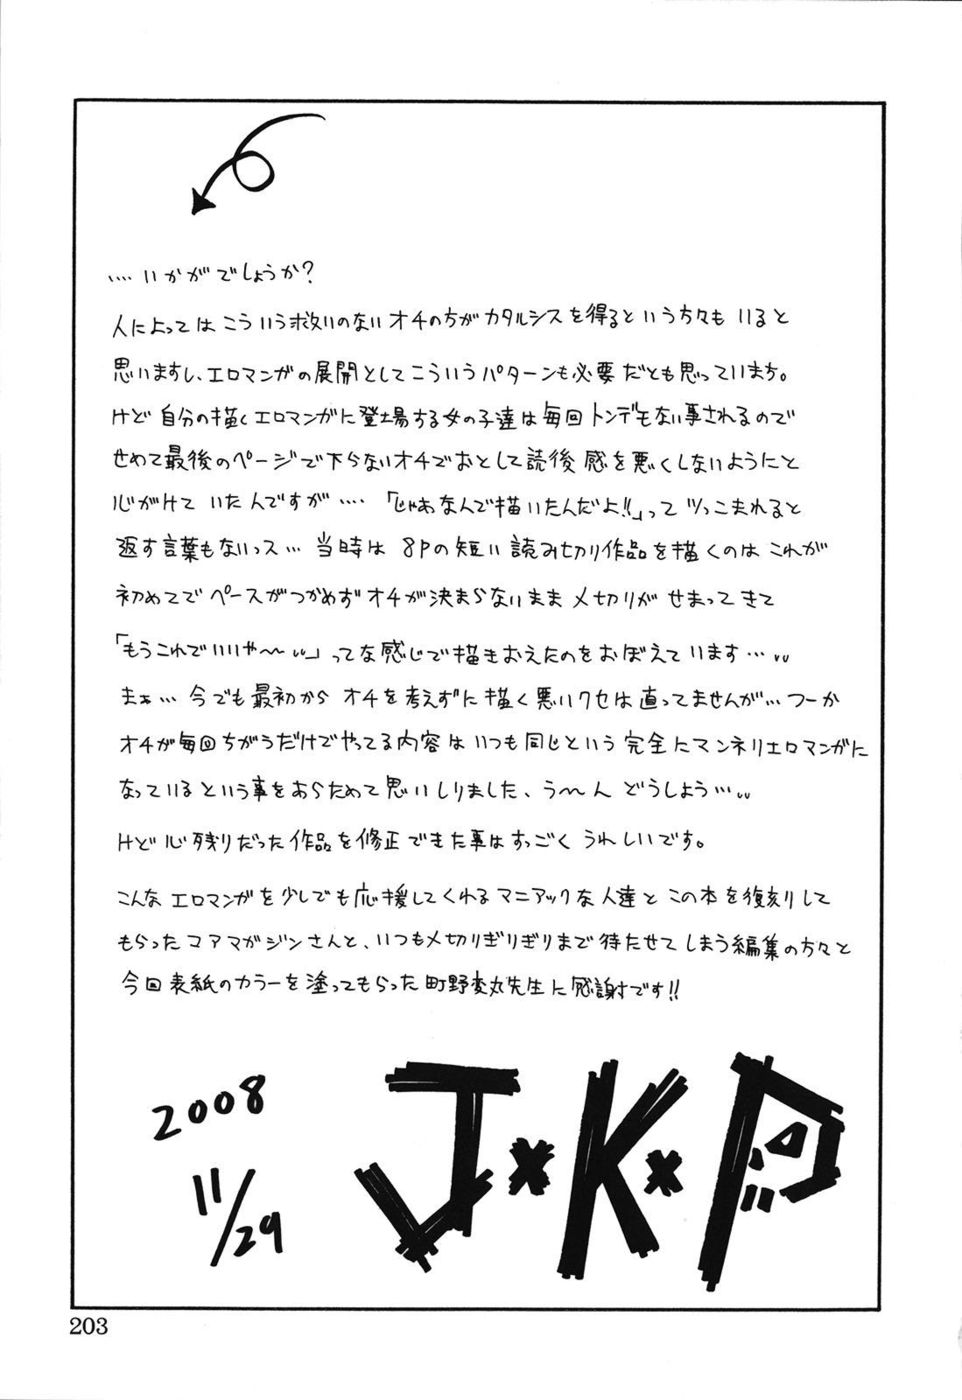 ....いかがでしょうか?
人によってはこういう救いのないオチの方がカタルシスを得るという方々もいると
思いますし、エロマンガの展開としてこういうパターンも必要だとも思っています。
けど自分の描くエロマンガに登場する女の子達は毎回トンデもない事されるので
せめて最後のページで下らないオチでおとして読後感を悪くしないようにと
心がけていたんですが....「じゃあなんで描いたんだよ!!」ってツっこまれると
返す言葉もないっス...当時は8Pの短い読み切り作品を描くのはこれが
初めてでペースがつかめずオチが決まらないままメ切りがせまってきて
「もうこれでいいや〜」ってな感じで描きおえたのをおぼえています...
まぁ...今でも最初からオチを考えずに描く悪いクセは直ってませんが...つーか
オチが毎回ちがうだけでやってる内容はいつも同じという完全にマンネリエロマンガに
なっているという事をあらためて思いしりました、う〜んどうしよう...
けど心残りだった作品を修正できた事はすっごくうれしいです。
こんなエロマンガを少しでも応援してくれるマニアックな人達とこの本を復刻して
もらったコアマガジンさんと、いつもメ切りぎりぎりまで待たせてしまう編集の方々と
今回表紙のカラーを塗ってもらった町野変丸先生に感謝です!!
2008
11/29
J×K×P
203